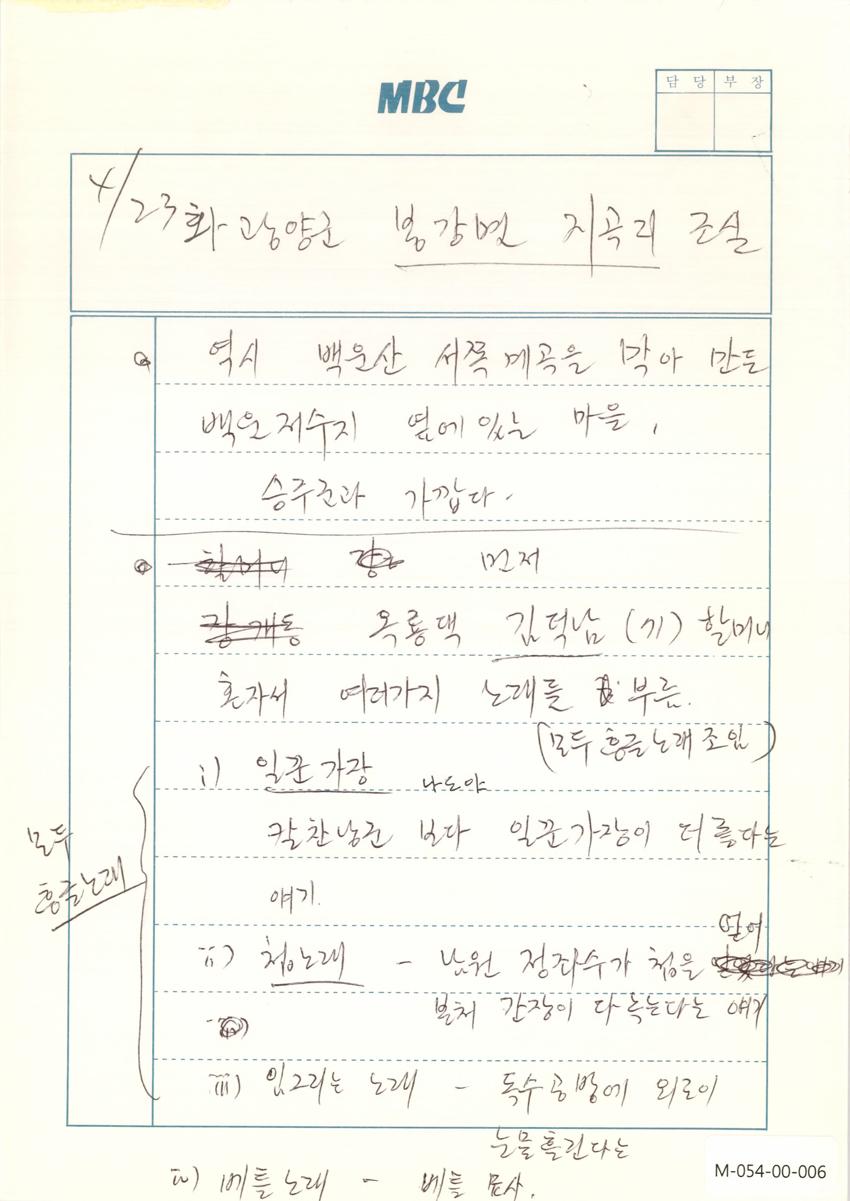 MBC
담 당 부 장
4/23 화 광양군 봉강면 지곡리 조실
역시 백운산 서쪽 계곡을 막아 만든
백운저수지 옆에 있는 마을,
승주군과 가깝다.
할머니 먼저
옥룡댁 김덕남 (기) 할머니
혼자서 여러가지 노래를 부름.
(모두 흥글노래 조임)
i) 일꾼가장
나도야
칼찬낭군 보다 일꾼가장이 더 좋다는
얘기.
모두
흥글노래
얻어
ii) 첩노래 - 남원 정좌수가 첩을
본처 간장이 다 녹는다는 얘기
iii) 임그리는 노래 - 독수공방에 외로이
눈물흘린다는
iv) 베틀노래 - 베틀 묘사.
M-054-00-006